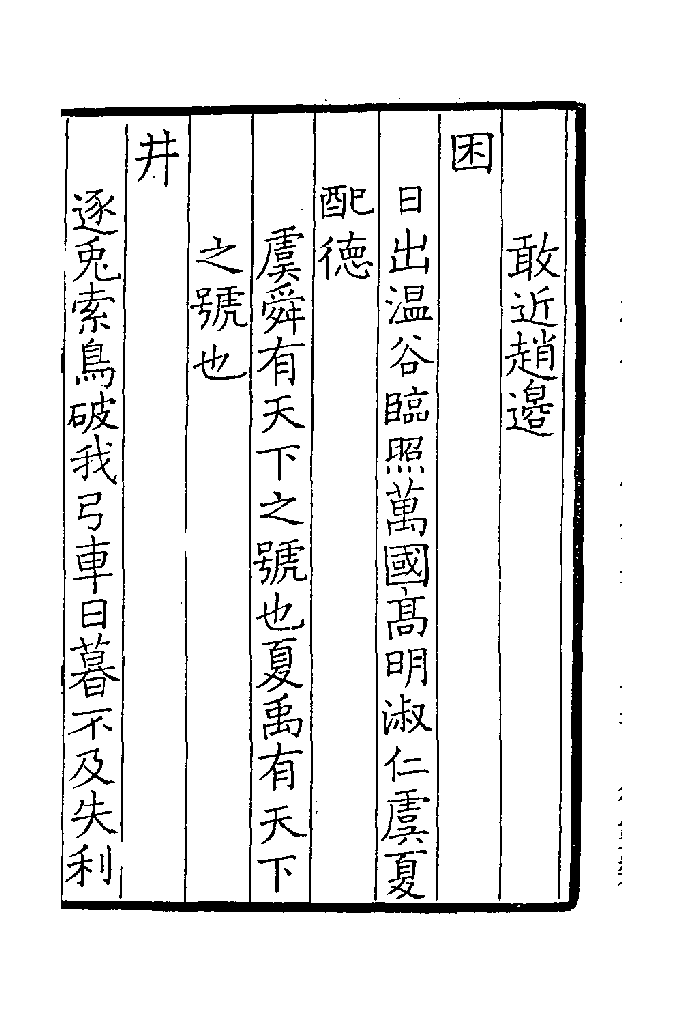 敢近趙邉
困
日出温谷臨照萬國髙明淑仁虞夏
配徳
虞舜有天下之號也夏禹有天下
之號也
井
逐兎索鳥破我弓車日暮不及失利